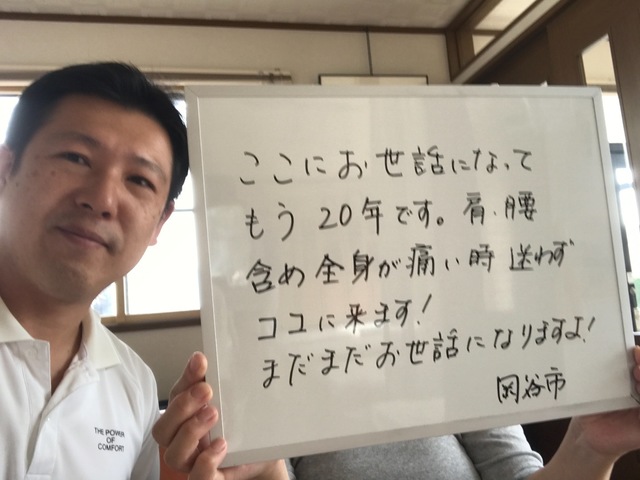 ここにお世話になって
もう20年です。肩、腰
含め全身が痛い時迷わず
ココに来ます!
まだまだお世話になりますよ!
岡谷市
THE POWER
OF
COMFORT